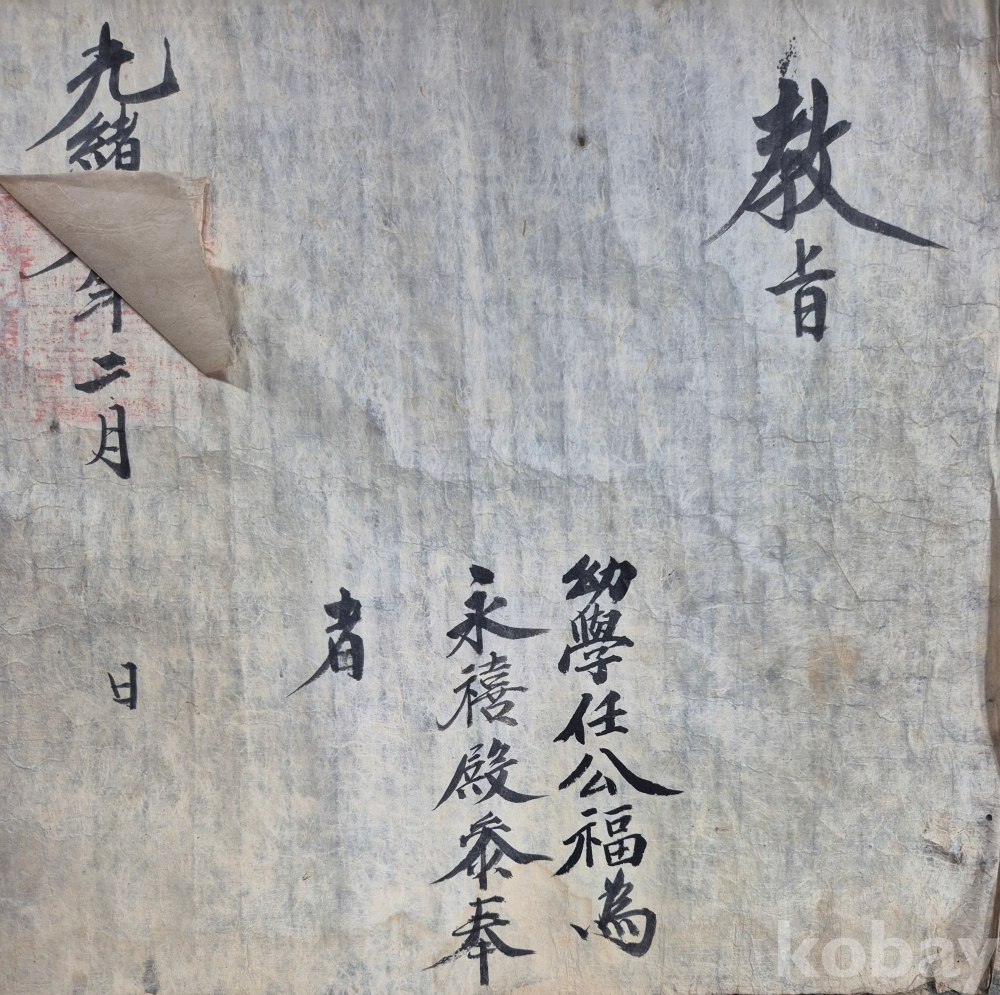 教旨
幼學任公福為
永禧殿參奉
者
光緒年二月 日
kobay